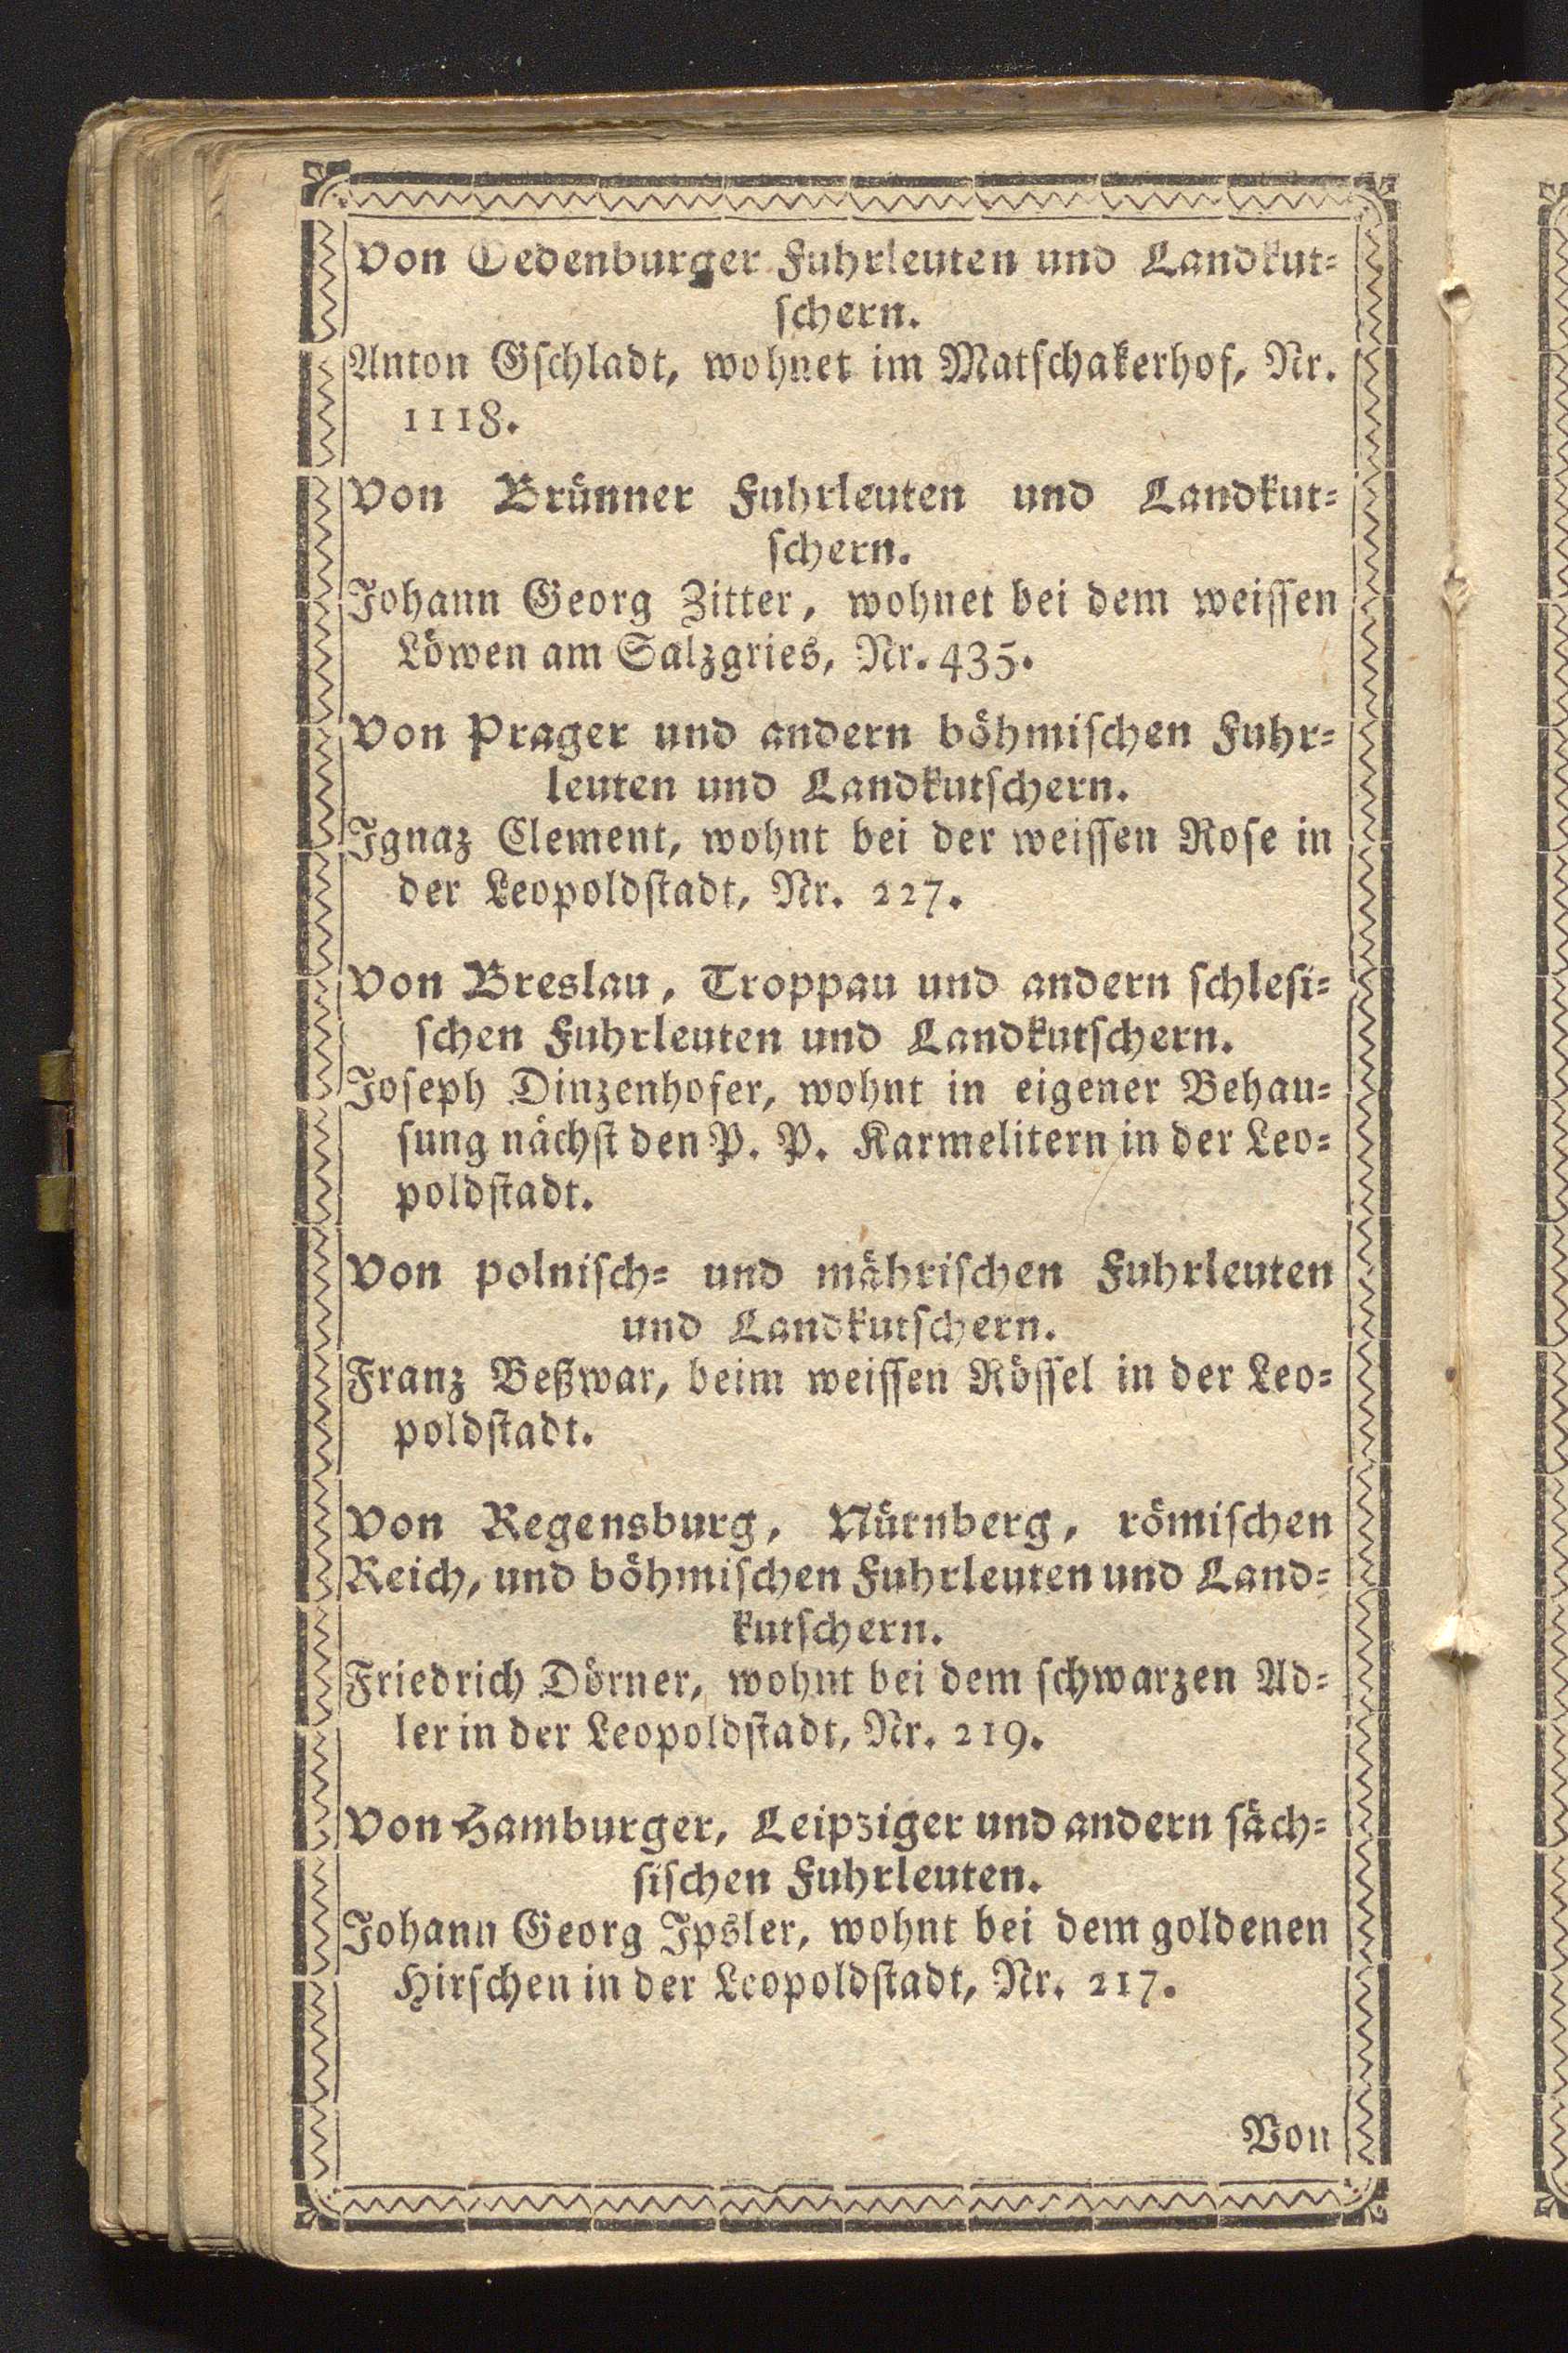 Von Oedenburger Fuhrleuten und Landkut=
schern.
Anton Gschladt, wohnet im Matschakerhof, Nr.
1118.
Von Brünner Fuhrleuten und Landkut=
schern.
Johann Georg Zitter, wohnet bei dem weissen
Löwen am Salzgries, Nr. 435.
Von Prager und andern böhmischen Fuhr=
leuten und Landkutschern.
Ignaz Clement, wohnt bei der weissen Rose in
der Leopoldstadt, Nr. 227.
Von Breslau, Troppau und andern schlesi=
schen Fuhrleuten und Landkutschern.
Joseph Dinzenhofer, wohnt in eigener Behau=
sung nächst den P. P. Karmelitern in der Leo=
poldstadt.
Von polnisch= und mährischen Fuhrleuten
und Landkutschern.
Franz Beßwar, beim weissen Rössel in der Leo=
poldstadt.
Von Regensburg, Nürnberg, römischen
Reich, und böhmischen Fuhrleuten und Land=
kutschern.
Friedrich Dörner, wohnt bei dem schwarzen Ad=
ler in der Leopoldstadt, Nr. 219.
Von Hamburger, Leipziger und andern säch=
sischen Fuhrleuten.
Johann Georg Ipsler, wohnt bei dem goldenen
Hirschen in der Leopoldstadt, Nr. 217.
Von